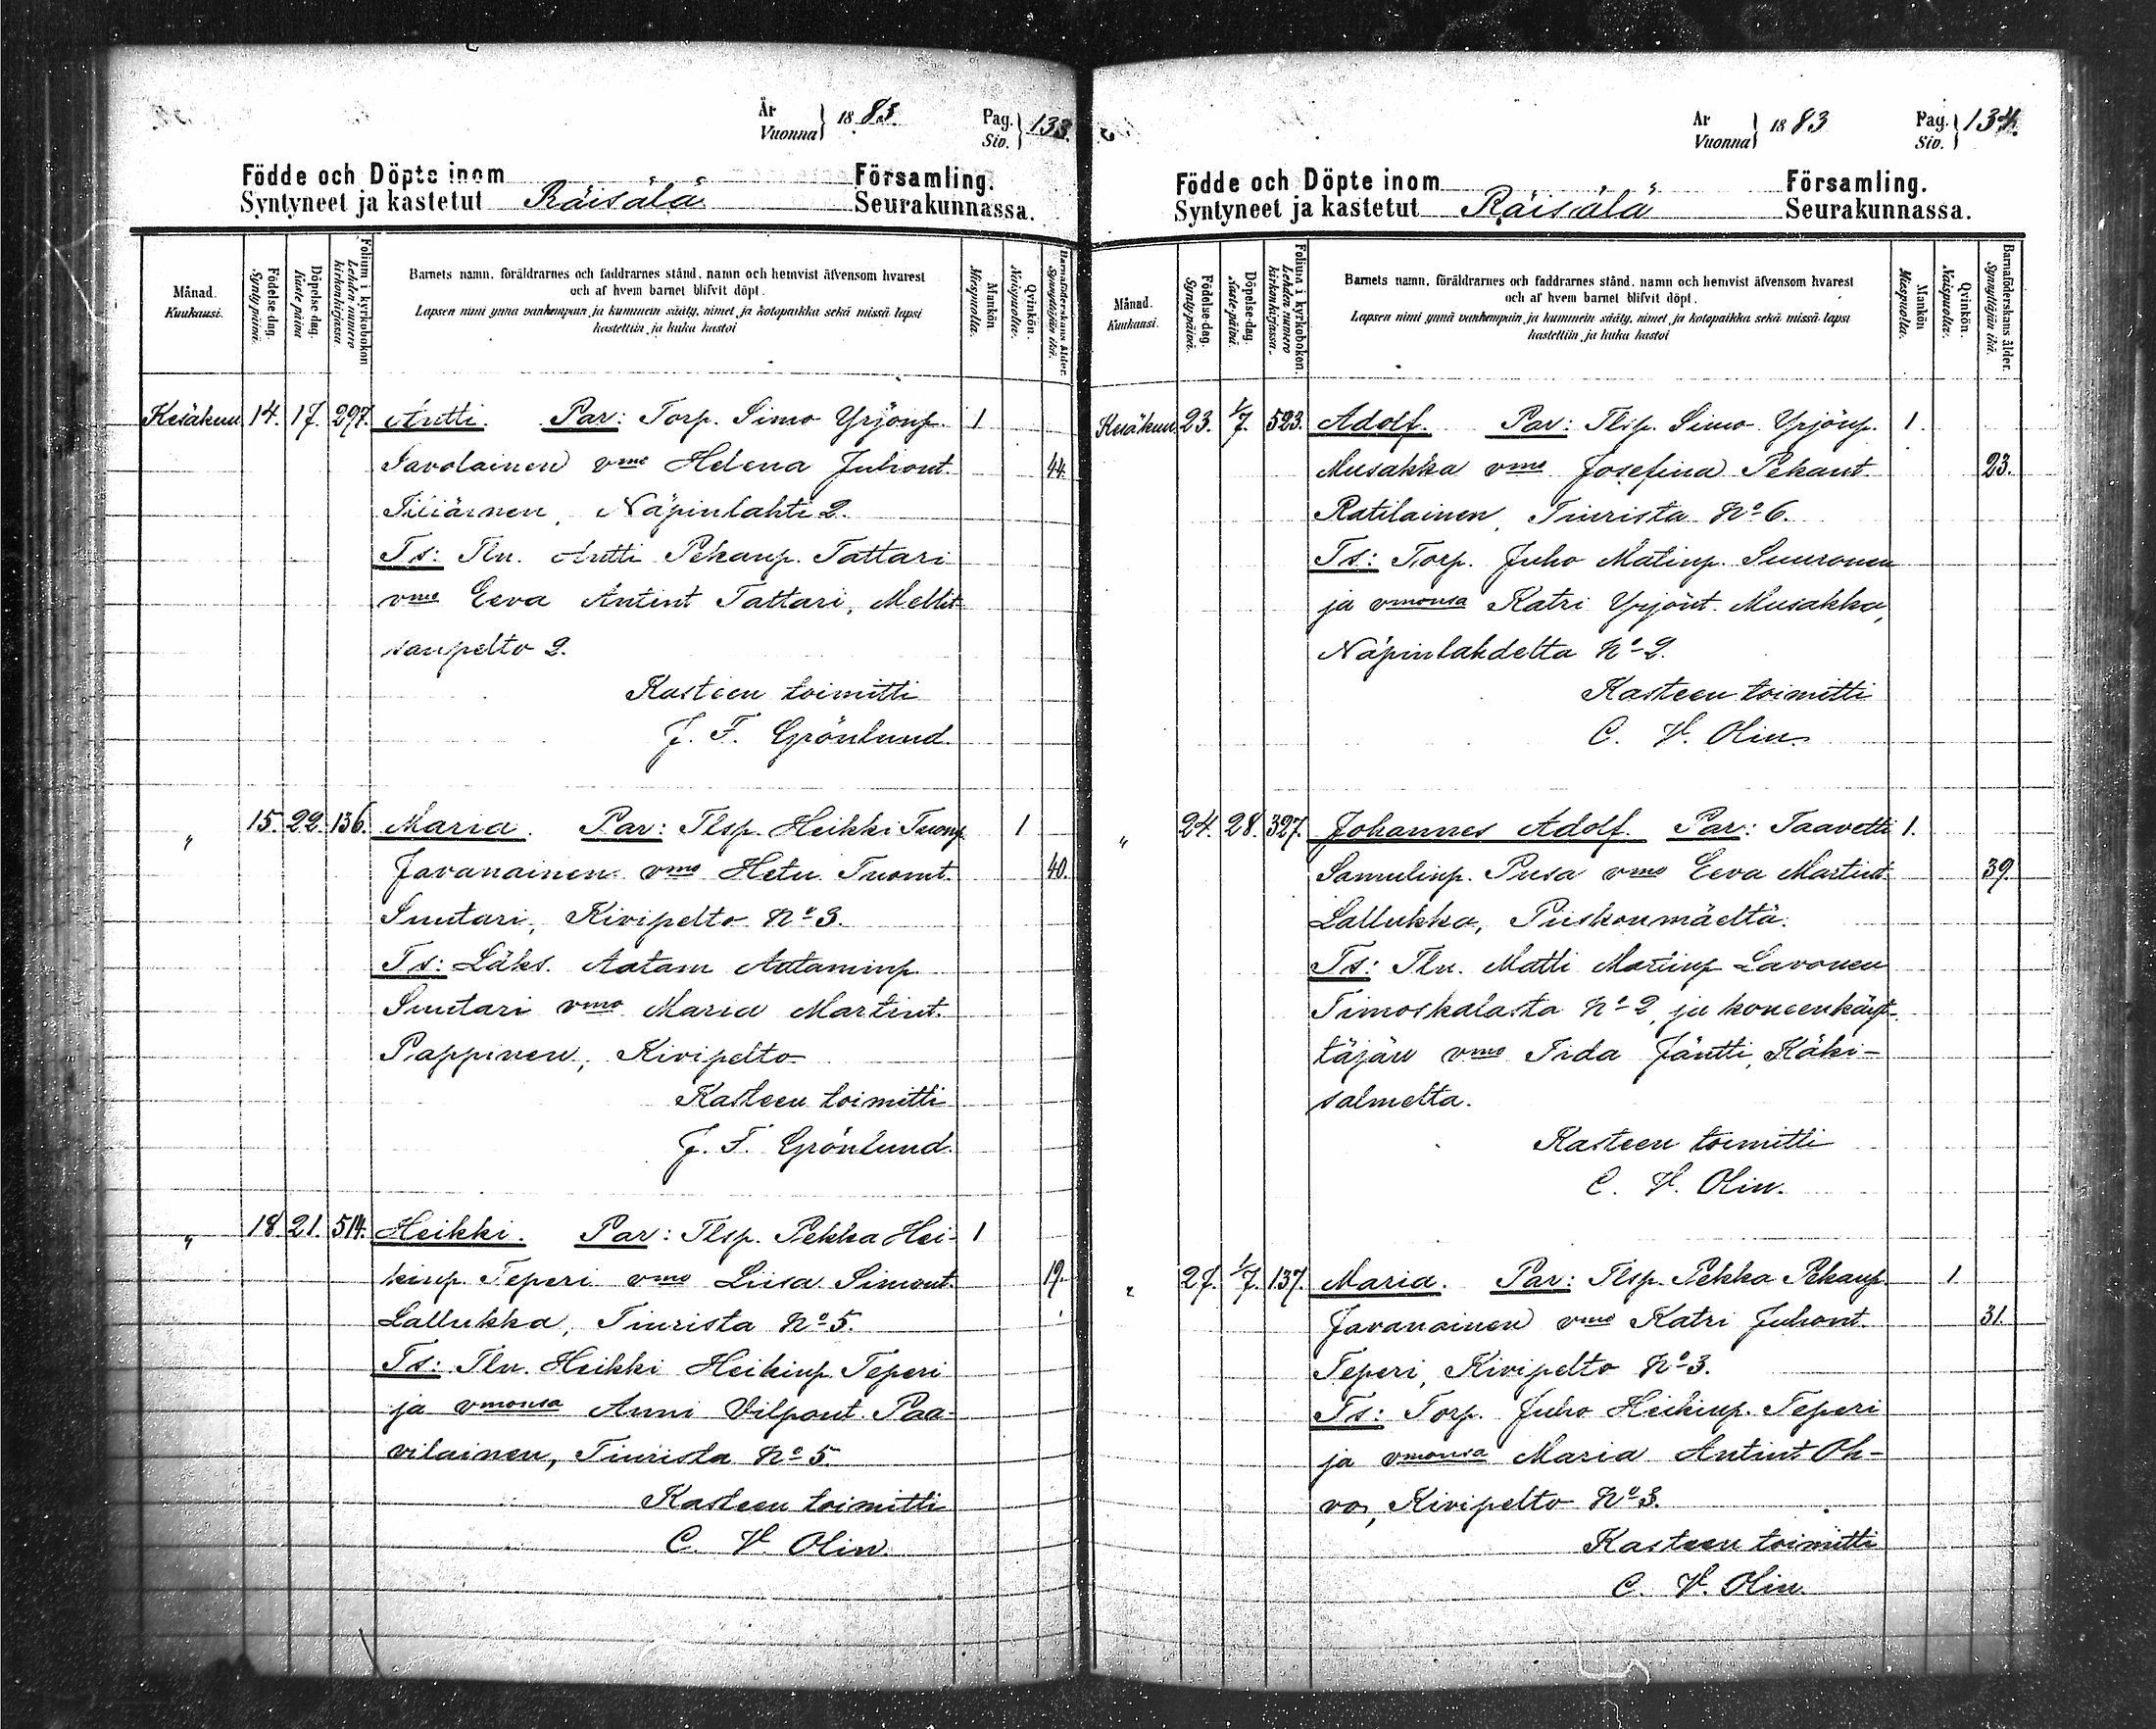 År Vuonna } 1883. Pag. Siv. } 133.
Födde och Döpte inom Församling.
Syntyneet ja kastetut Räisälä Seurakunnassa.
Månad. Kuukausi.
Födelse dag. Synty päivä.
Döpelse dag. Kaste päivä
Folium i kyrkobokon Lehden numero kirkonkirjassa
Barnets namn, föräldrarnes och faddrarnes stånd, namn och hemvist äfvensom hvarest
och af hvem barnet blifvit döpt.
Lapsen nimi ynnä vanhempain ja kummein sääty, nimet ja kotopaikka sekä missä lapsi
kastettiin ja kuka kastoi
Mankön Miespuolta.
Qvinkön. Naispuolta.
Barnaföderskans ålder. Synnyttäjän ikä.
Kesäkuu 14. 17. 297. Antti. Par: Torp. Simo Yrjönp. 1
Savolainen vmo Helena Juhont. 44.
Näpinlahti 2.
Ts: Tln. Antti Pekanp. Tattari
vmo Eeva Antint Tattari, Mellit-
sanpelto 2.
Kasteen toimitti
J. F. Grönlund.
" 15. 22. 136. Maria. Par: Tlsp. Heikki Tuomp. 1
Javanainen vmo Hetu Tuomt. 40.
Suutari, Kivipelto No 3.
Ts: Läks. Aatam Aataminp
Suutari vmo Maria Martint.
Pappinen, Kivipelto
Kasteen toimitti
J. F. Grönlund.
" 18 21. 514. Heikki. Par: Tlsp. Pekka Hei- 1
kinp. Teperi vmo Liisa Simont. 19.
Lallukka, Tiurista No 5.
Ts: Tln. Heikki Heikinp Teperi
ja vmonsa Anni Vilpont. Paa-
vilainen, Tiurista No 5.
Kasteen toimitti
C. V. Olin.
År Vuonna } 1883 Pag. Siv. } 134.
Födde och Döpte inom Församling.
Syntyneet ja kastetut Räisälä Seurakunnassa.
Månad. Kuukausi.
Födelse-dag. Synty-päivä.
Döpelse-dag. Kaste-päivä.
Folium i kyrkobokon. Lehden numero kirkonkirjassa.
Barnets namn, föräldrarnes och faddrarnes stånd, namn och hemvist äfvensom hvarest
och af hvem barnet blifvit döpt.
Lapsen nimi ynnä vanhempain ja kummein sääty, nimet ja kotopaikka sekä missä lapsi
kastettiin ja kuka kastoi
Mankön Miespuolta.
Qvinkön. Naispuolta.
Barnaföderskans ålder. Synnyttäjän ikä.
Kesäkuu. 23. 1/7. 523. Adolf. Par: Tlsp. Simo Yrjönp. 1.
Musakka vmo Josefina Pekant 23.
Ratilainen, Tiurista No 6.
Ts: Torp. Juho Matinp. Suuronen
ja vmonsa Katri Yrjönt. Musakka,
Näpinlahdelta No 2.
Kasteen toimitti
C. V. Olin.
" 24. 28. 327. Johannes Adolf. Par: Taavetti 1.
Samulinp. Pusa vmo Eeva Martint. 39.
Lallukka, Piiskonmäeltä.
Ts: Tln. Matti Martinp Lavonen
Timoskalasta No 2, ja koneenkäyt-
täjän vmo Iida Jäntti, Käki-
salmelta.
Kasteen toimitti
C. V. Olin.
" 27. 1/7. 137. Maria. Par: Tlsp. Pekka Pekanp 1
Javanainen vmo Katri Juhont. 31.
Teperi, Kivipelto No 3.
Ts: Torp. Juho Heikinp. Teperi
ja vmonsa Maria Antint Oh-
vo, Kivipelto No 3.
Kasteen toimitti
C. V. Olin.